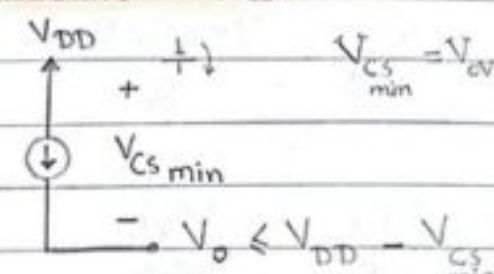 V_DD
+
V_CS min = V_ov
V_CS min
− V_o ≤ V_DD − V_CS